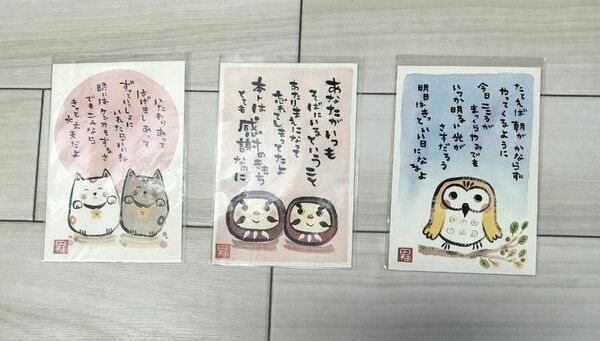 いたわりあって
はげましあって
ずっといっしょに
いれたらいいね
時にはケンカもするさ
でも二人なら
きっと大丈夫だよ
あなたがいつも
そばにいるということ
あたりまえになって
忘れてしまってたよ
本当は感謝のきもち
とても
なのに
たとえば朝がかならず
やってくるように
今日 こころが
まっくらやみでも
いつか明るい光が
さすだろう
明日はきっといい日になるよ